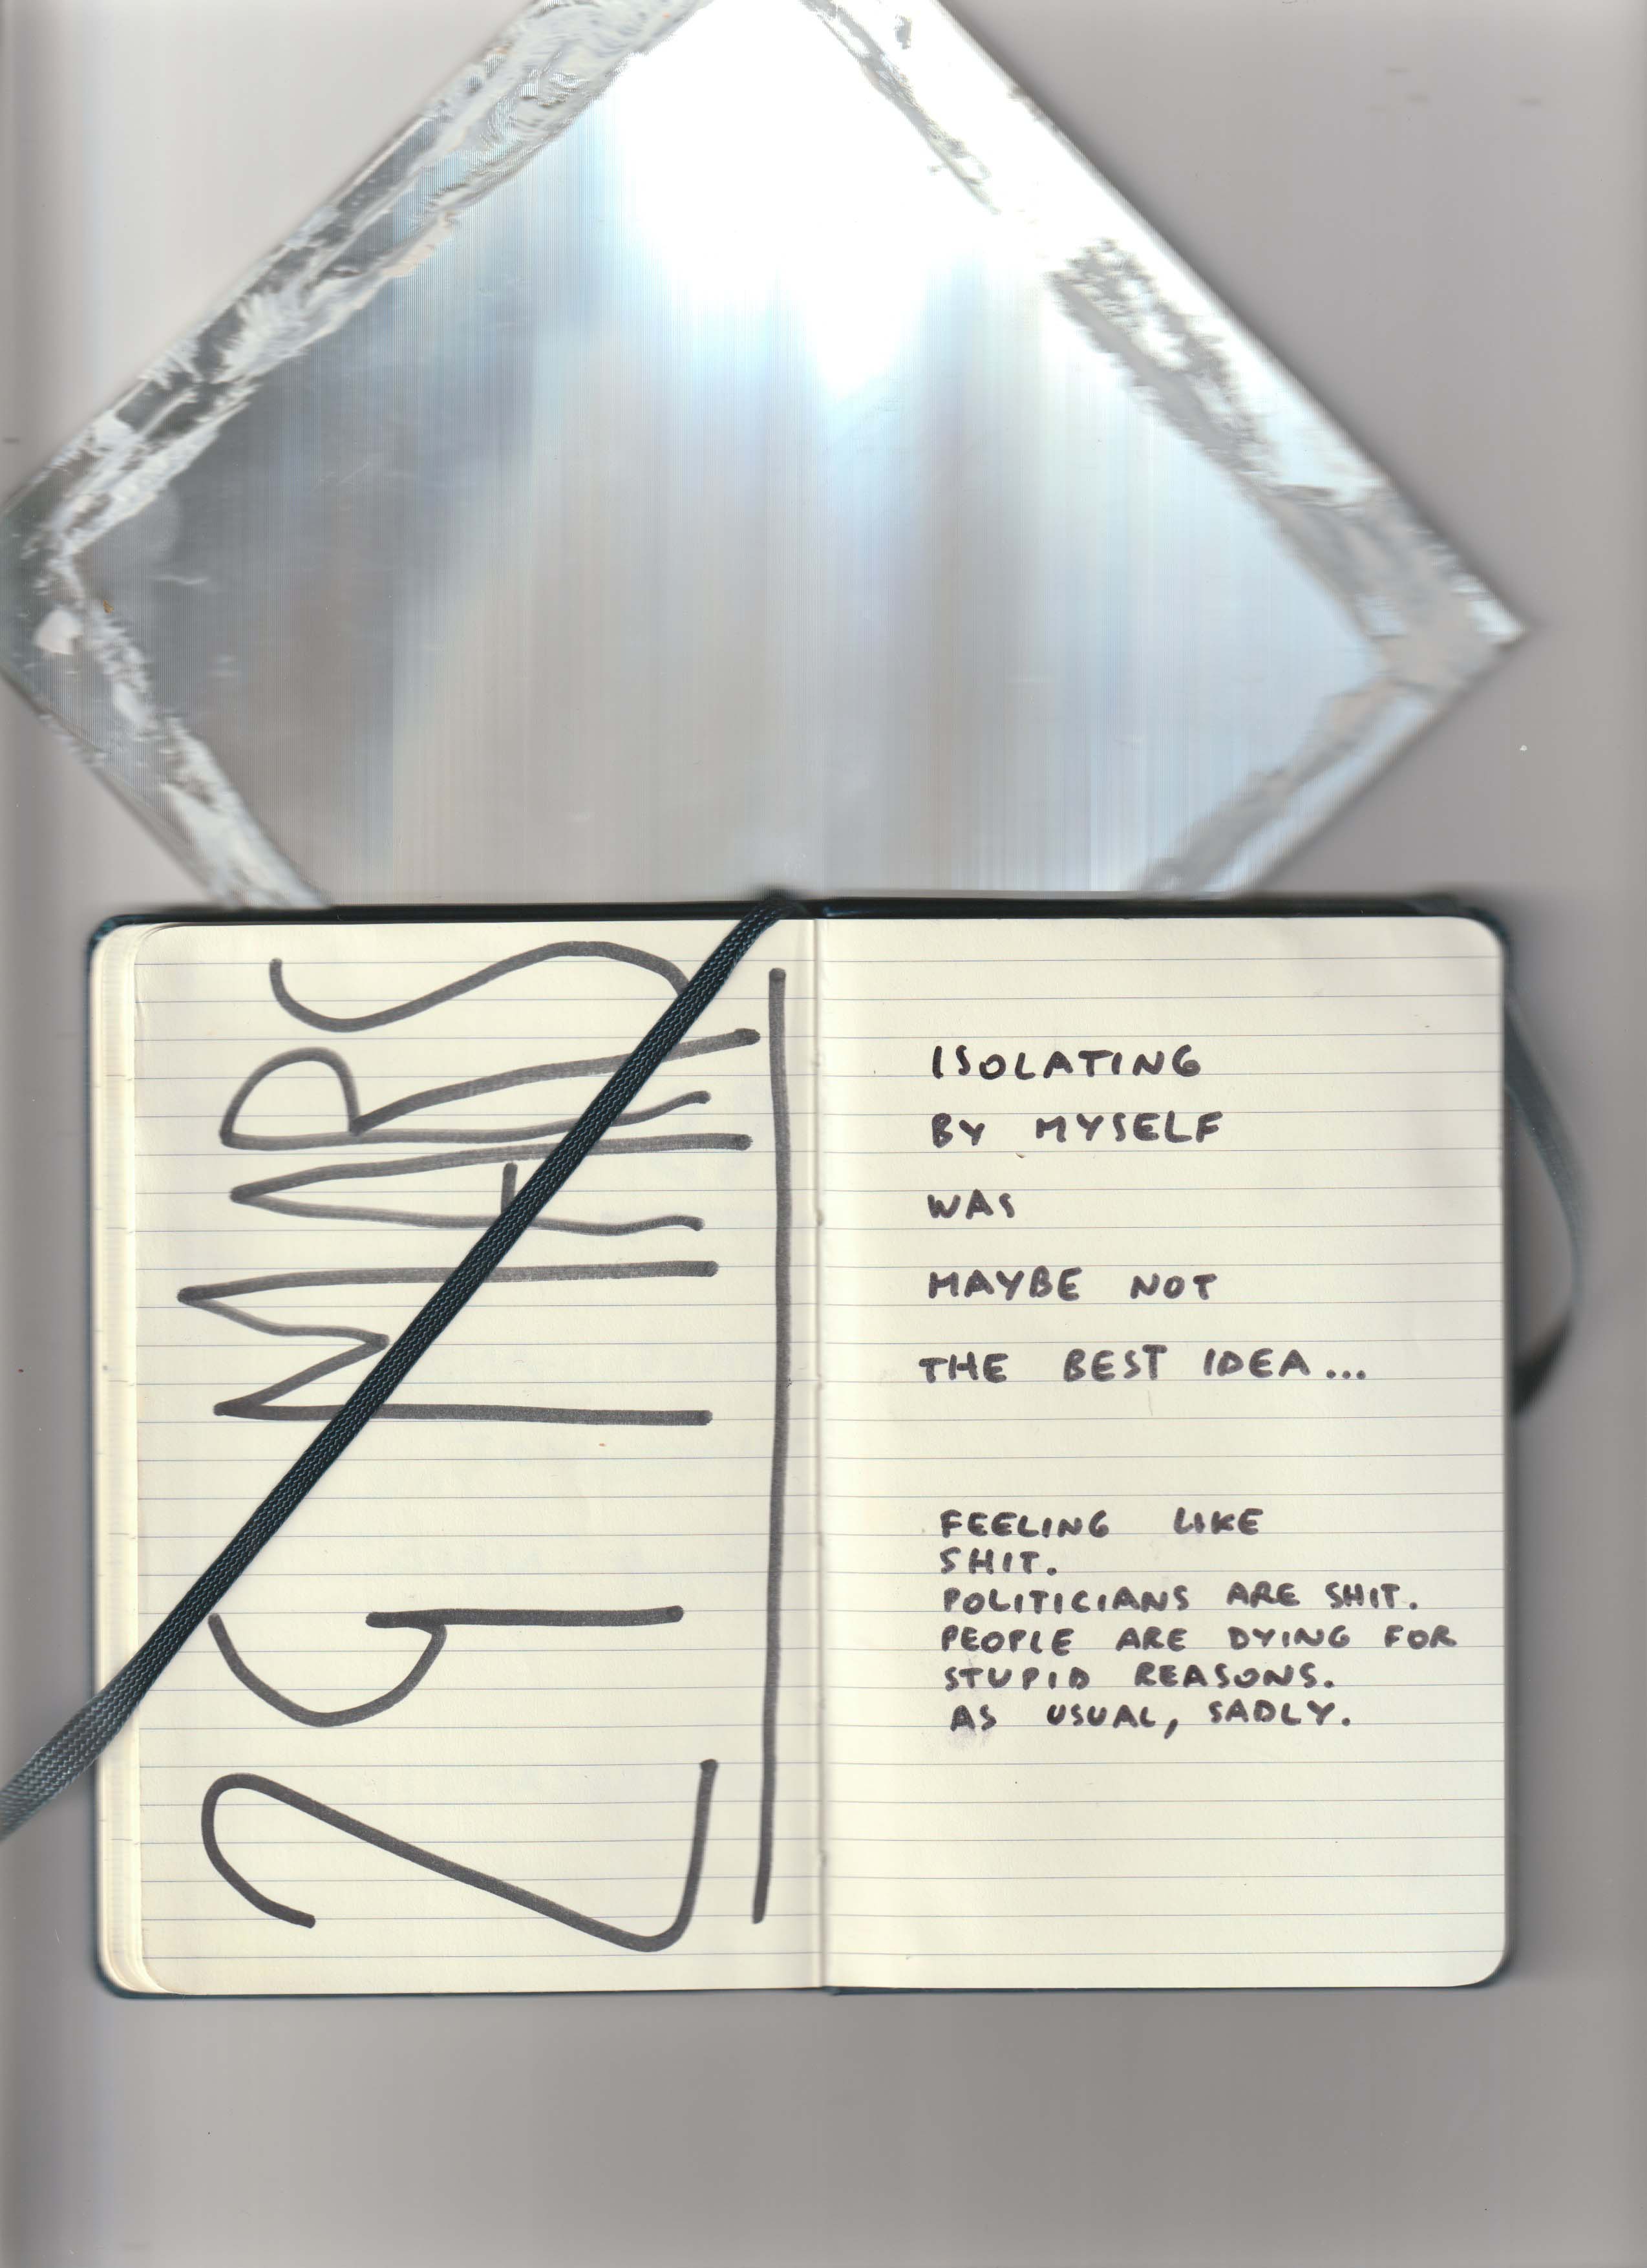 29 MARS
ISOLATING
BY MYSELF
WAS
MAYBE NOT
THE BEST IDEA...
FEELING LIKE
SHIT.
POLITICIANS ARE SHIT.
PEOPLE ARE DYING FOR
STUPID REASONS.
AS USUAL, SADLY.